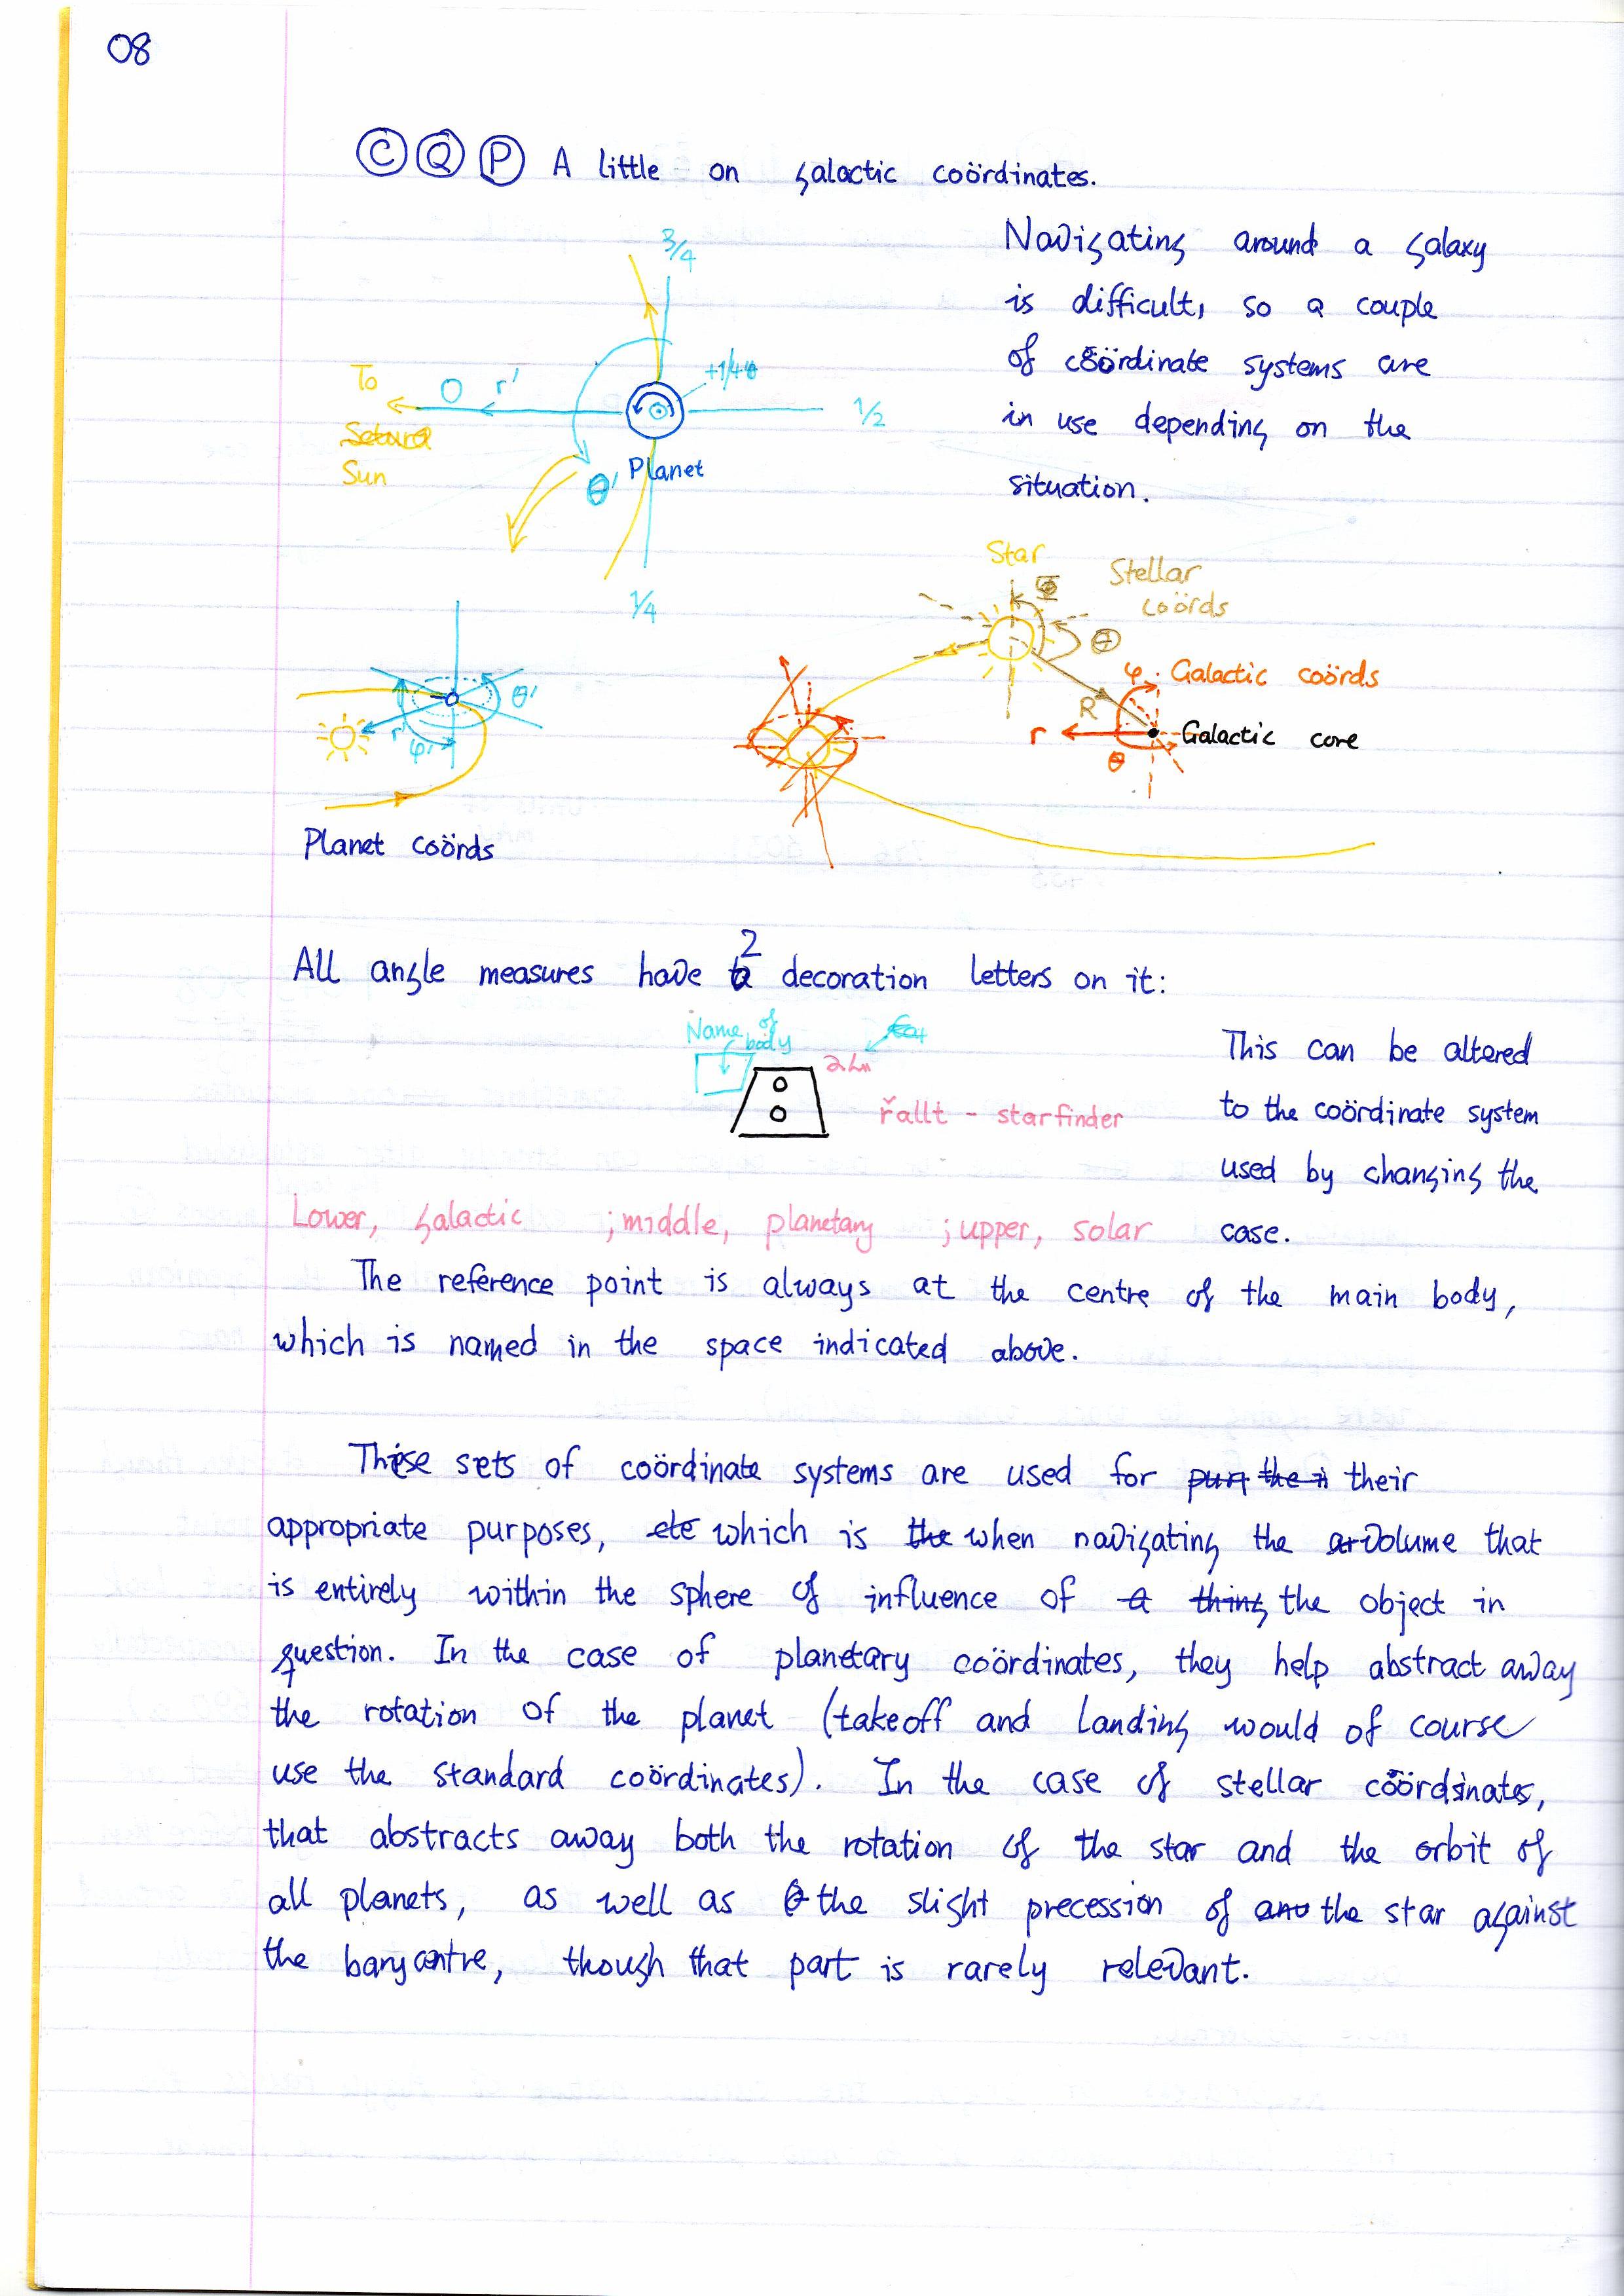 08
Ⓒ Ⓠ Ⓟ A little on galactic coördinates.
Navigating around a galaxy
is difficult, so a couple
of coördinate systems are
in use depending on the
situation.
3/4
To
Sun
0 r'
1/2
θ' Planet
1/4
Star
Stellar
coörds
Φ
Θ
R
φ Galactic coörds
r
Galactic core
θ
θ'
r'
φ'
Planet coörds
All angle measures have 2 decoration letters on it:
Name of
body
řallt - starfinder
This can be altered
to the coördinate system
used by changing the
case.
Lower, galactic ; middle, planetary ; upper, solar
The reference point is always at the centre of the main body,
which is named in the space indicated above.
These sets of coördinate systems are used for their
appropriate purposes, which is when navigating the volume that
is entirely within the sphere of influence of the object in
question. In the case of planetary coördinates, they help abstract away
the rotation of the planet (takeoff and landing would of course
use the standard coördinates). In the case of stellar coördinates,
that abstracts away both the rotation of the star and the orbit of
all planets, as well as the slight precession of the star against
the barycentre, though that part is rarely relevant.